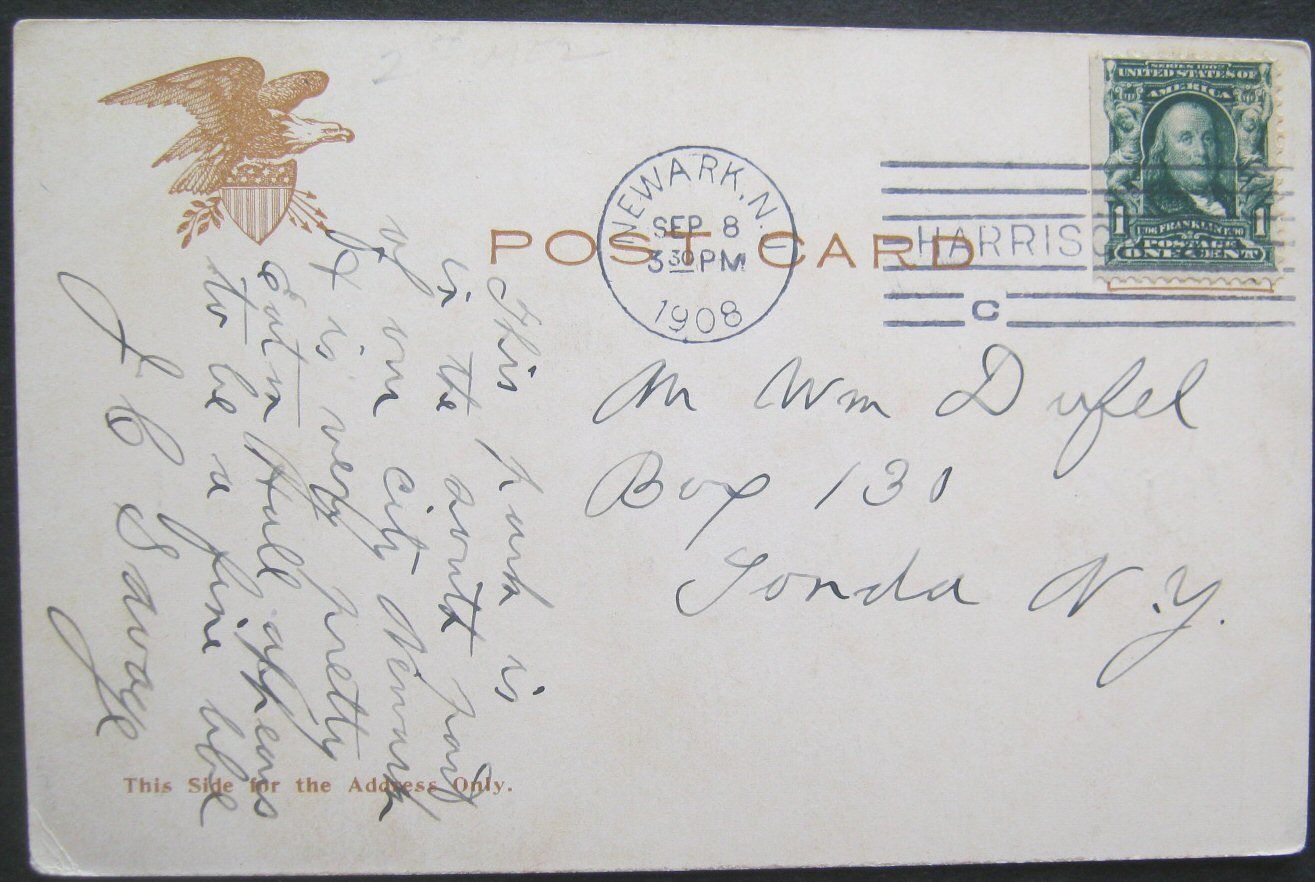 SERIES 1902
UNITED STATES OF
AMERICA
1 1
FRANKLIN
POSTAGE
ONE CENT
NEWARK, N.J.
SEP 8
3 30 PM
1908
HARRISO
C
POST CARD
Mr Wm Dufel
Box 130
Fonda N.Y.
This park is
in the south part
of our city Newark
It is very pretty
Hall appears
to be a fine
J C Savage
This Side for the Address Only.